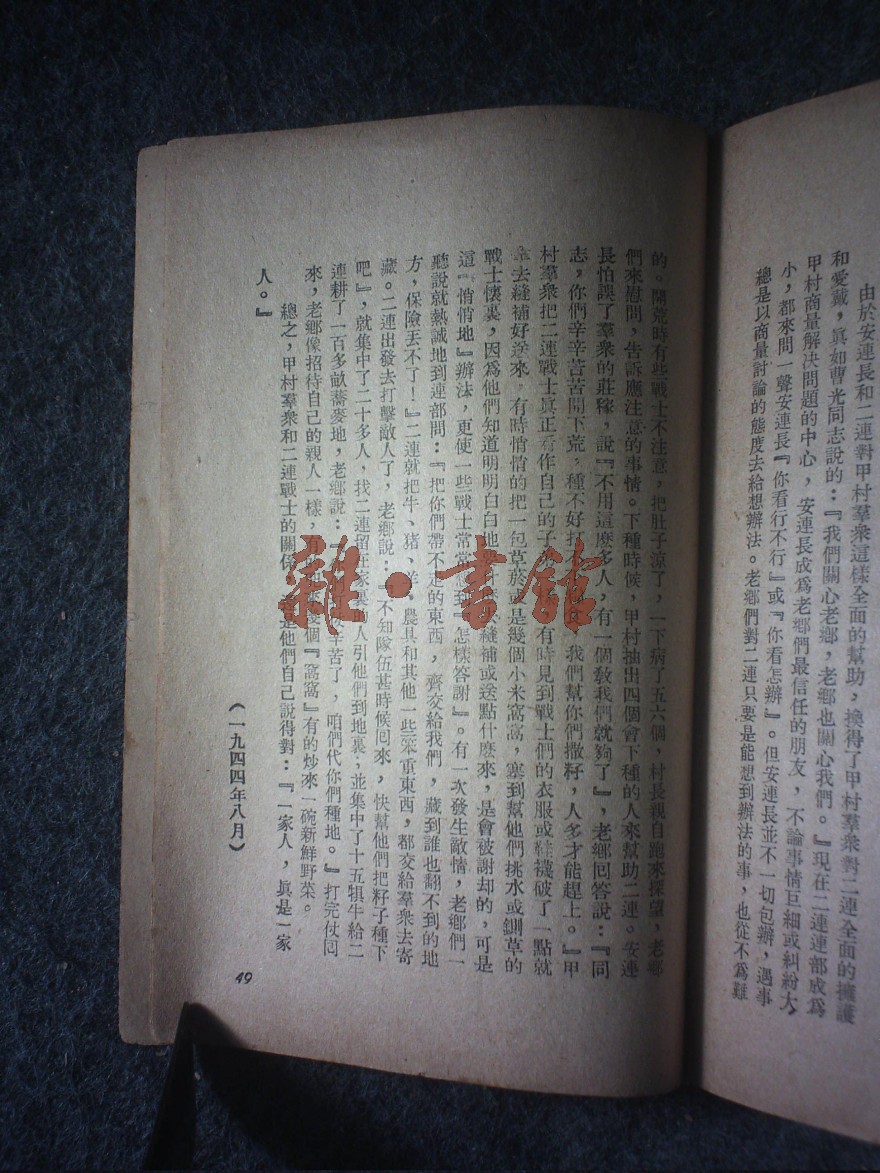 由於安連長和二連對甲村羣衆這樣全面的幫助，換得了甲村羣衆對二連全面的擁護
和愛戴，眞如曹光同志說的：『我們關心老鄉，老鄉也關心我們。』現在二連連部成爲
甲村商量解決問題的中心，安連長成爲老鄉們最信任的朋友，不論事情巨細或糾紛大、
小，都來問一聲安連長『你看行不行』或『你看怎辦』。但安連長並不一切包辦，遇事
總是以商量討論的態度去給想辦法。老鄉們對二連只要是能想到辦法的事，也從不爲難
的。開荒時有些戰士不注意，把肚子涼了，一下病了五六個，村長親自跑來探望，老鄉
們來慰問，告訴應注意的事情。下種時候，甲村抽出四個會下種的人來幫助二連。安連
長怕誤了羣衆的莊稼，說『不用這麼多人，有一個敎我們就夠了』，老鄉回答說：『同
志，你們辛辛苦苦開下荒，種不好打 我們幫你們撒籽，人多才能趕上。』甲
村羣衆把二連戰士眞正看作自己的子 有時見到戰士們的衣服或鞋襪破了一點就
拿去縫補好送來，有時悄悄的把一包草菸或是幾個小米窩窩，塞到幫他們挑水或鍘草的
戰士懷裏，因爲他們知道明明白白地 縫補或送點什麼來，是會被謝却的，可是
這『悄悄地』辦法，更使一些戰士常常 到『怎樣答謝』。有一次發生敵情，老鄉們一
聽說就熱誠地到連部問：『把你們帶不走的東西，齊交給我們，藏到誰也翻不到的地
方，保險丟不了！』二連就把牛、猪、羊、農具和其他一些笨重東西，都交給羣衆去寄
藏。二連出發去打擊敵人了，老鄉說：『不知隊伍甚時候囘來，快幫他們把籽子種下
吧』，就集中了二十多人，找二連留在家裏 人引他們到地裏；並集中了十五犋牛給二
連耕了一百多畝蕎麥地，老鄉說：『 辛苦了，咱們代你們種地。』打完仗囘
來，老鄉像招待自己的親人一樣，有 幾個『窩窩』有的炒來一碗新鮮野菜。
總之，甲村羣衆和二連戰士的關係， 是他們自己說得對：『一家人，眞是一家
人。』
（一九四四年八月）
49
雜・書館